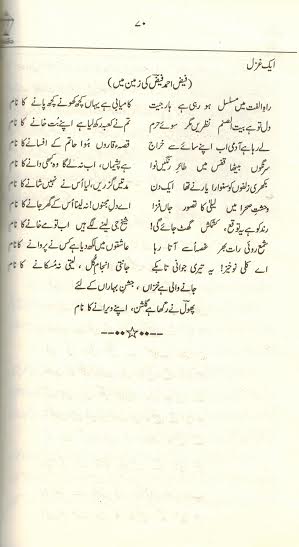 ۷۰
ایک غزل
(فیض احمد فیضؔ کی زمین میں)
راہِ الفت میں مسلسل ہو رہی ہے ہار جیت کامیابی ہے یہاں کچھ کھونے کچھ پانے کا نام
دل تو ہے بیت الصنم نظریں مگر سوئے حرم تم نے کعبہ رکھ لیا ہے اپنے بُت خانے کا نام
لے رہا ہے آدمی اب اپنے سائے سے خراج قصہ قاروں ہُوا حاتم کے افسانے کا نام
سرنگوں بیٹھا قفس میں طائرِ رنگیں نوا ہے پشیماں، اب نہ لے گا وہ کبھی دانے کا نام
بکھری زلفوں کو سنوارا یار نے تھا ایک دن مدتیں گزریں، لیا اُس نے نہیں شانے کا نام
وحشتِ صحرا میں لیلیٰ کا تصور جاں فزا اے دلِ مجنوں! نہ لینا اُس کے گھر جانے کا نام
رند کو ہے یہ توقع، کشمکش گھٹ جائے گی! شیخ جی لینے لگے ہیں اب تو مے خانے کا نام
شمع روئی رات بھر غصہ سے آتا رہا عاشقوں میں لکھ دیا ہے کس نے پروانے کا نام
اے کلی نوخیز! یہ تیری جوانی تابکے جانتی انجامِ گُل، لیتی نہ مُسکانے کا نام
جانے والی ہے خزاں، جشنِ بہاراں کے لئے
پھولؔ نے رکھا ہے گلشن، اپنے ویرانے کا نام